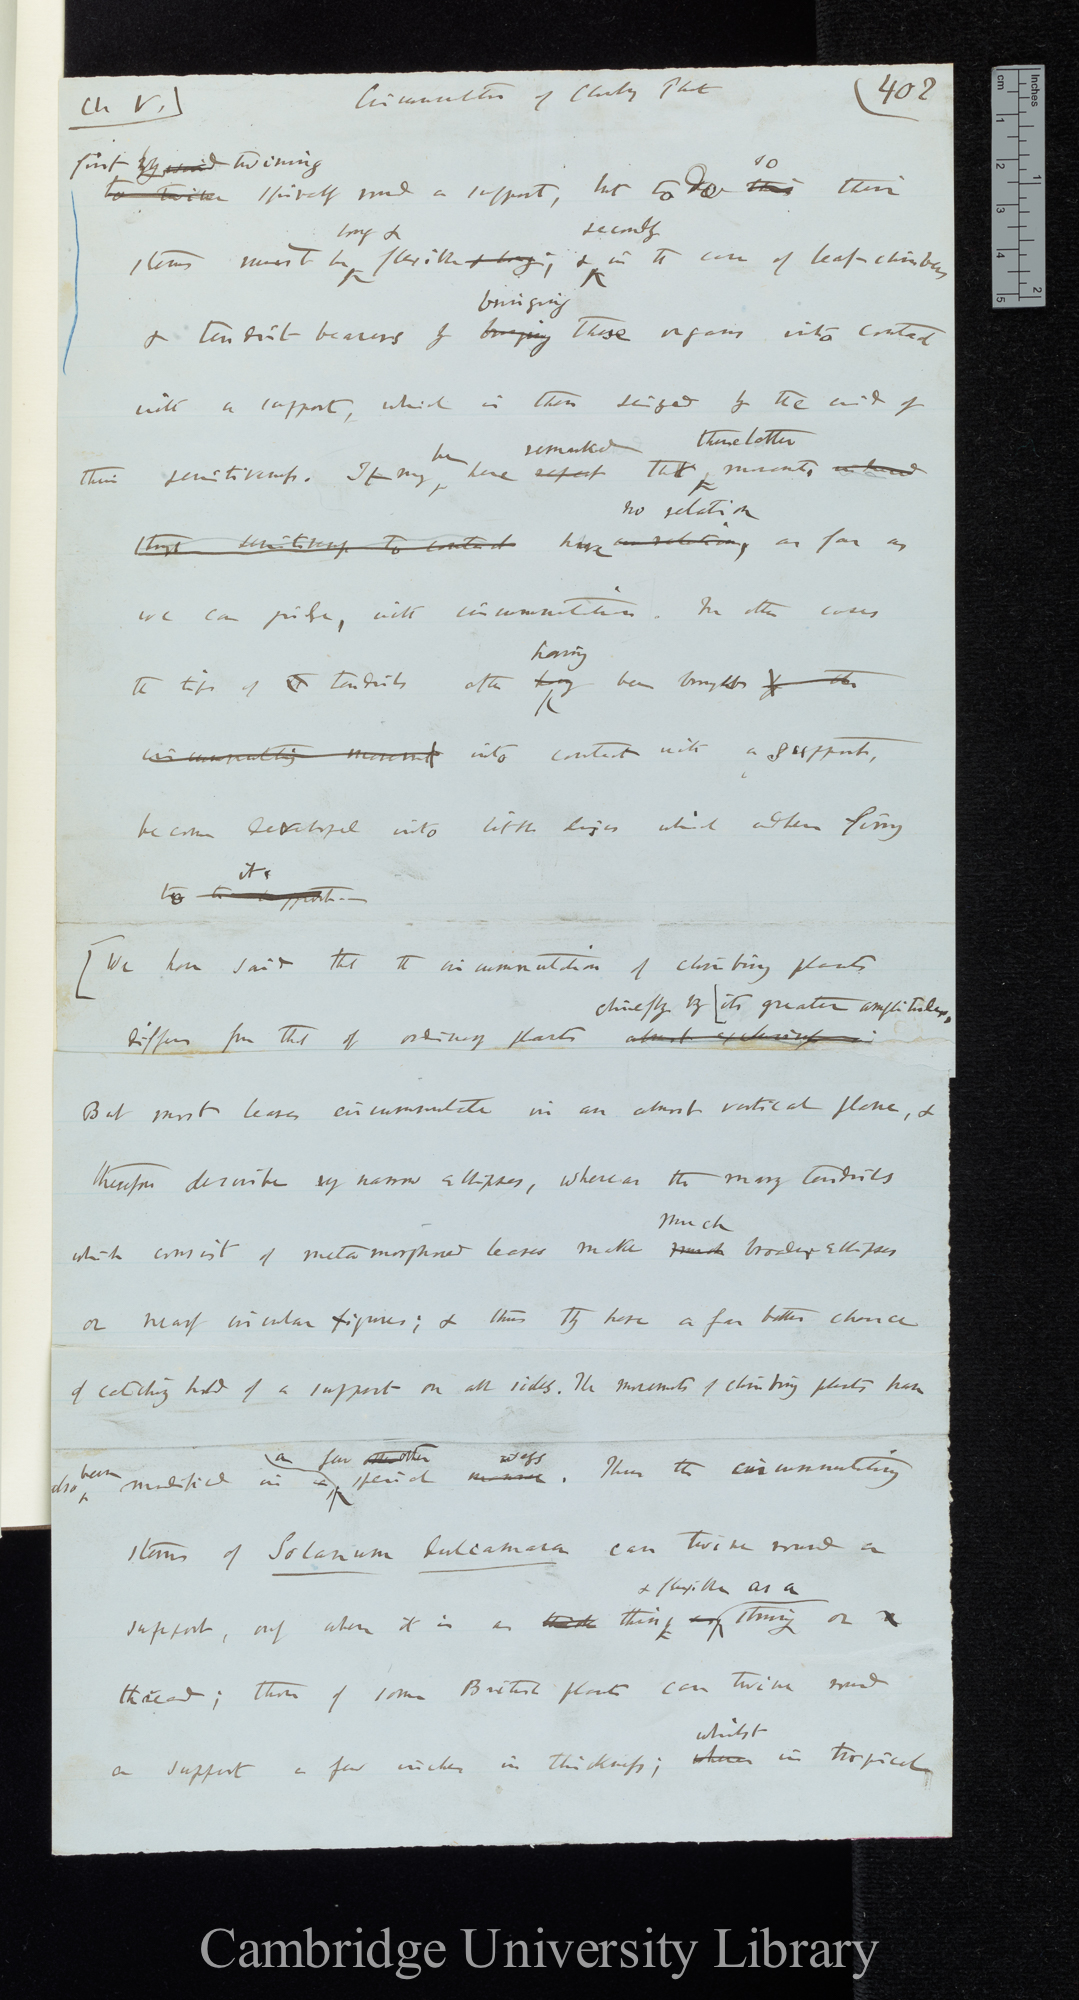 Ch V.] Circumnutation of Climbing Plants (402
first by twining
to twine spirally round a support, but to do so this their
long & secondly
stems must be flexible & long; & in the case of leaf-climbers
bringing
& tendril bearers by bringing these organs into contact
with a support, which is then seized by the aid of
be remarked these latter
their sensitiveness. It may here repeat that movements
no relation
their sensitiveness to contact have no relation, as far as
we can judge, with circumnutation. In other cases
having
the tips of tendrils after being been brought by the
circumnutating movement into contact with a support,
become developed into little discs which adhere firmly
it.
to the support.—
[We have said that the circumnutation of climbing plants
chiefly by its greater amplitude.
differs from that of ordinary plants almost exclusively in
But most leaves circumnutate in an almost vertical plane, &
therefore describe very narrow ellipses, whereas the many tendrils
much
which consist of metamorphosed leaves make much broader ellipses
or nearly circular figures; & thus they have a far better chance
of catching hold of a support on all sides. The movements of climbing plants have
been a few other ways
also modified in a special manner. Thus the circumnutating
stems of Solanum dulcamara can twine round a
& flexible as a
support, only when it is as thick thin string or
thread; those of some British plants can twine round
whilst
a support a few inches in thickness; when in tropical
Inches
cm
1
2
3
4
5
1
2
Cambridge University Library